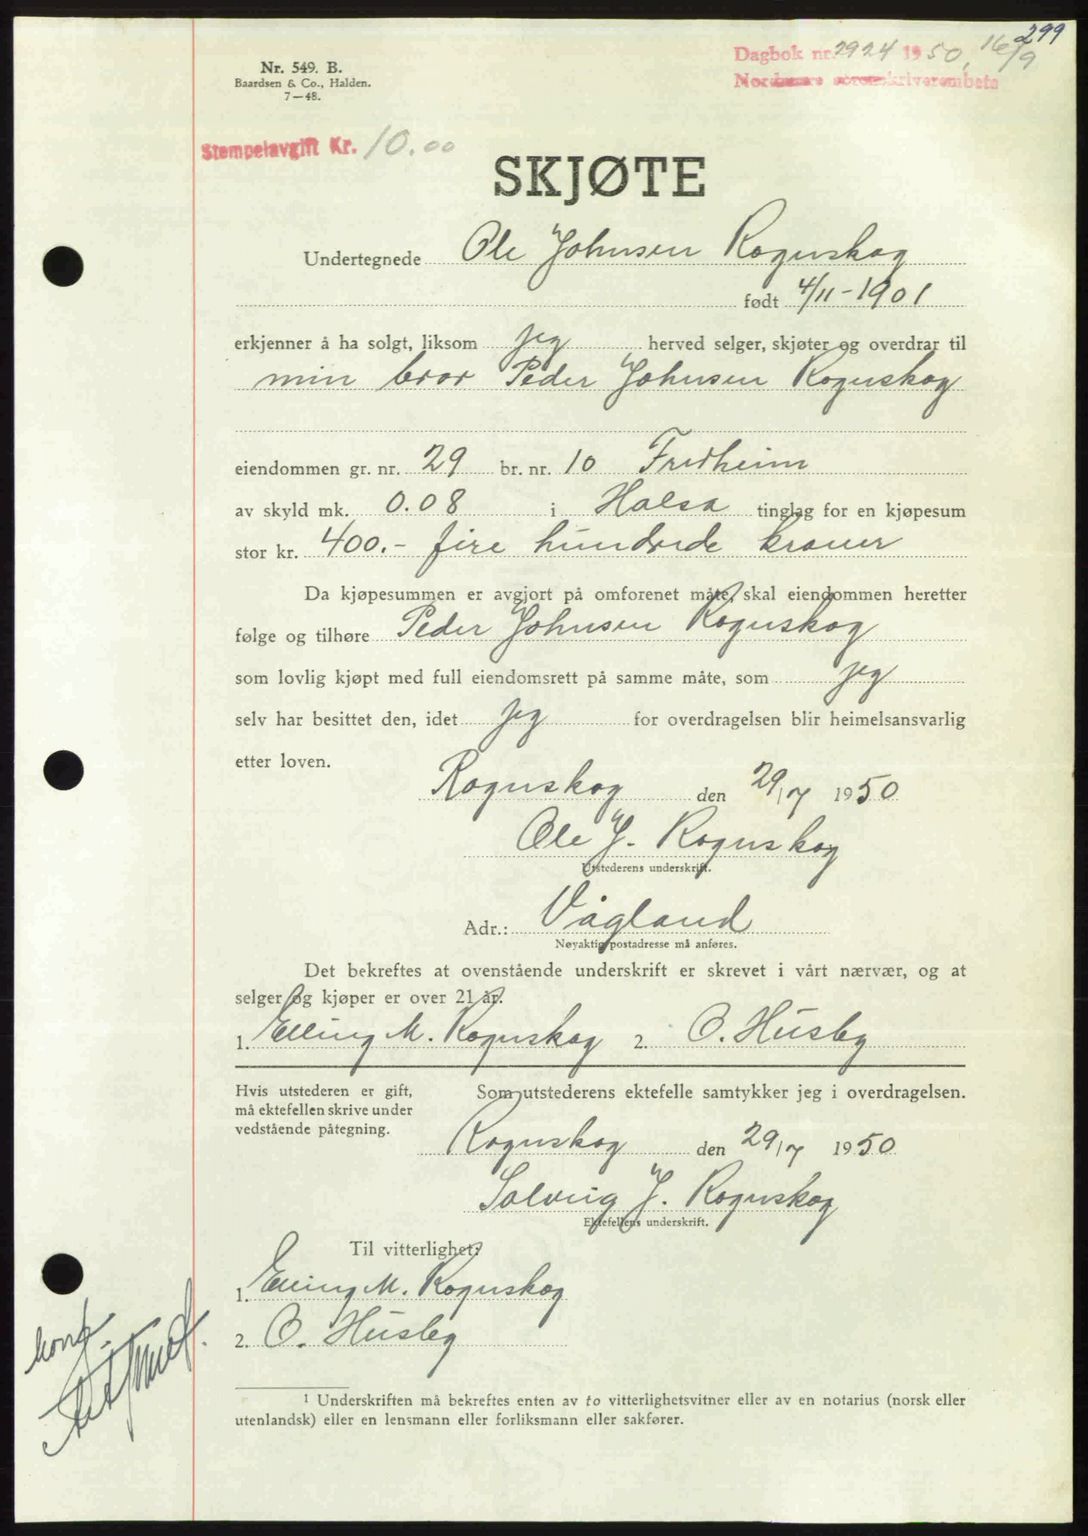 299
Dagbok nr. 2924 1950, 16/9
Nordmøre sorenskriverembete
Nr. 549. B.
Baardsen & Co., Halden.
7—48.
Stempelavgift Kr. 10.00
SKJØTE
Undertegnede Ole Johnsen Rognskog
født 4/11-1901
erkjenner å ha solgt, liksom jeg herved selger, skjøter og overdrar til
min bror Peder Johnsen Rognskog
eiendommen gr. nr. 29 br. nr. 10 Fredheim
av skyld mk. 0.08 i Halsa tinglag for en kjøpesum
stor kr. 400.- fire hundrede kroner
Da kjøpesummen er avgjort på omforenet måte, skal eiendommen heretter
følge og tilhøre Peder Johnsen Rognskog
som lovlig kjøpt med full eiendomsrett på samme måte, som jeg
selv har besittet den, idet jeg for overdragelsen blir heimelsansvarlig
etter loven.
Rognskog den 29/7 1950
Ole J. Rognskog
Utstederens underskrift.
Adr.: Vågland
Nøyaktig postadresse må anføres.
Det bekreftes at ovenstående underskrift er skrevet i vårt nærvær, og at
selger og kjøper er over 21 år.
1. Elling M. Rognskog 2. O. Husby
Hvis utstederen er gift, Som utstederens ektefelle samtykker jeg i overdragelsen.
må ektefellen skrive under
vedstående påtegning.
Rognskog den 29/7 1950
Solveig J. Rognskog
Ektefellens underskrift.
Til vitterlighet:
1. Elling M. Rognskog
2. O. Husby
konf.
¹ Underskriften må bekreftes enten av to vitterlighetsvitner eller av en notarius (norsk eller
utenlandsk) eller en lensmann eller forliksmann eller sakfører.